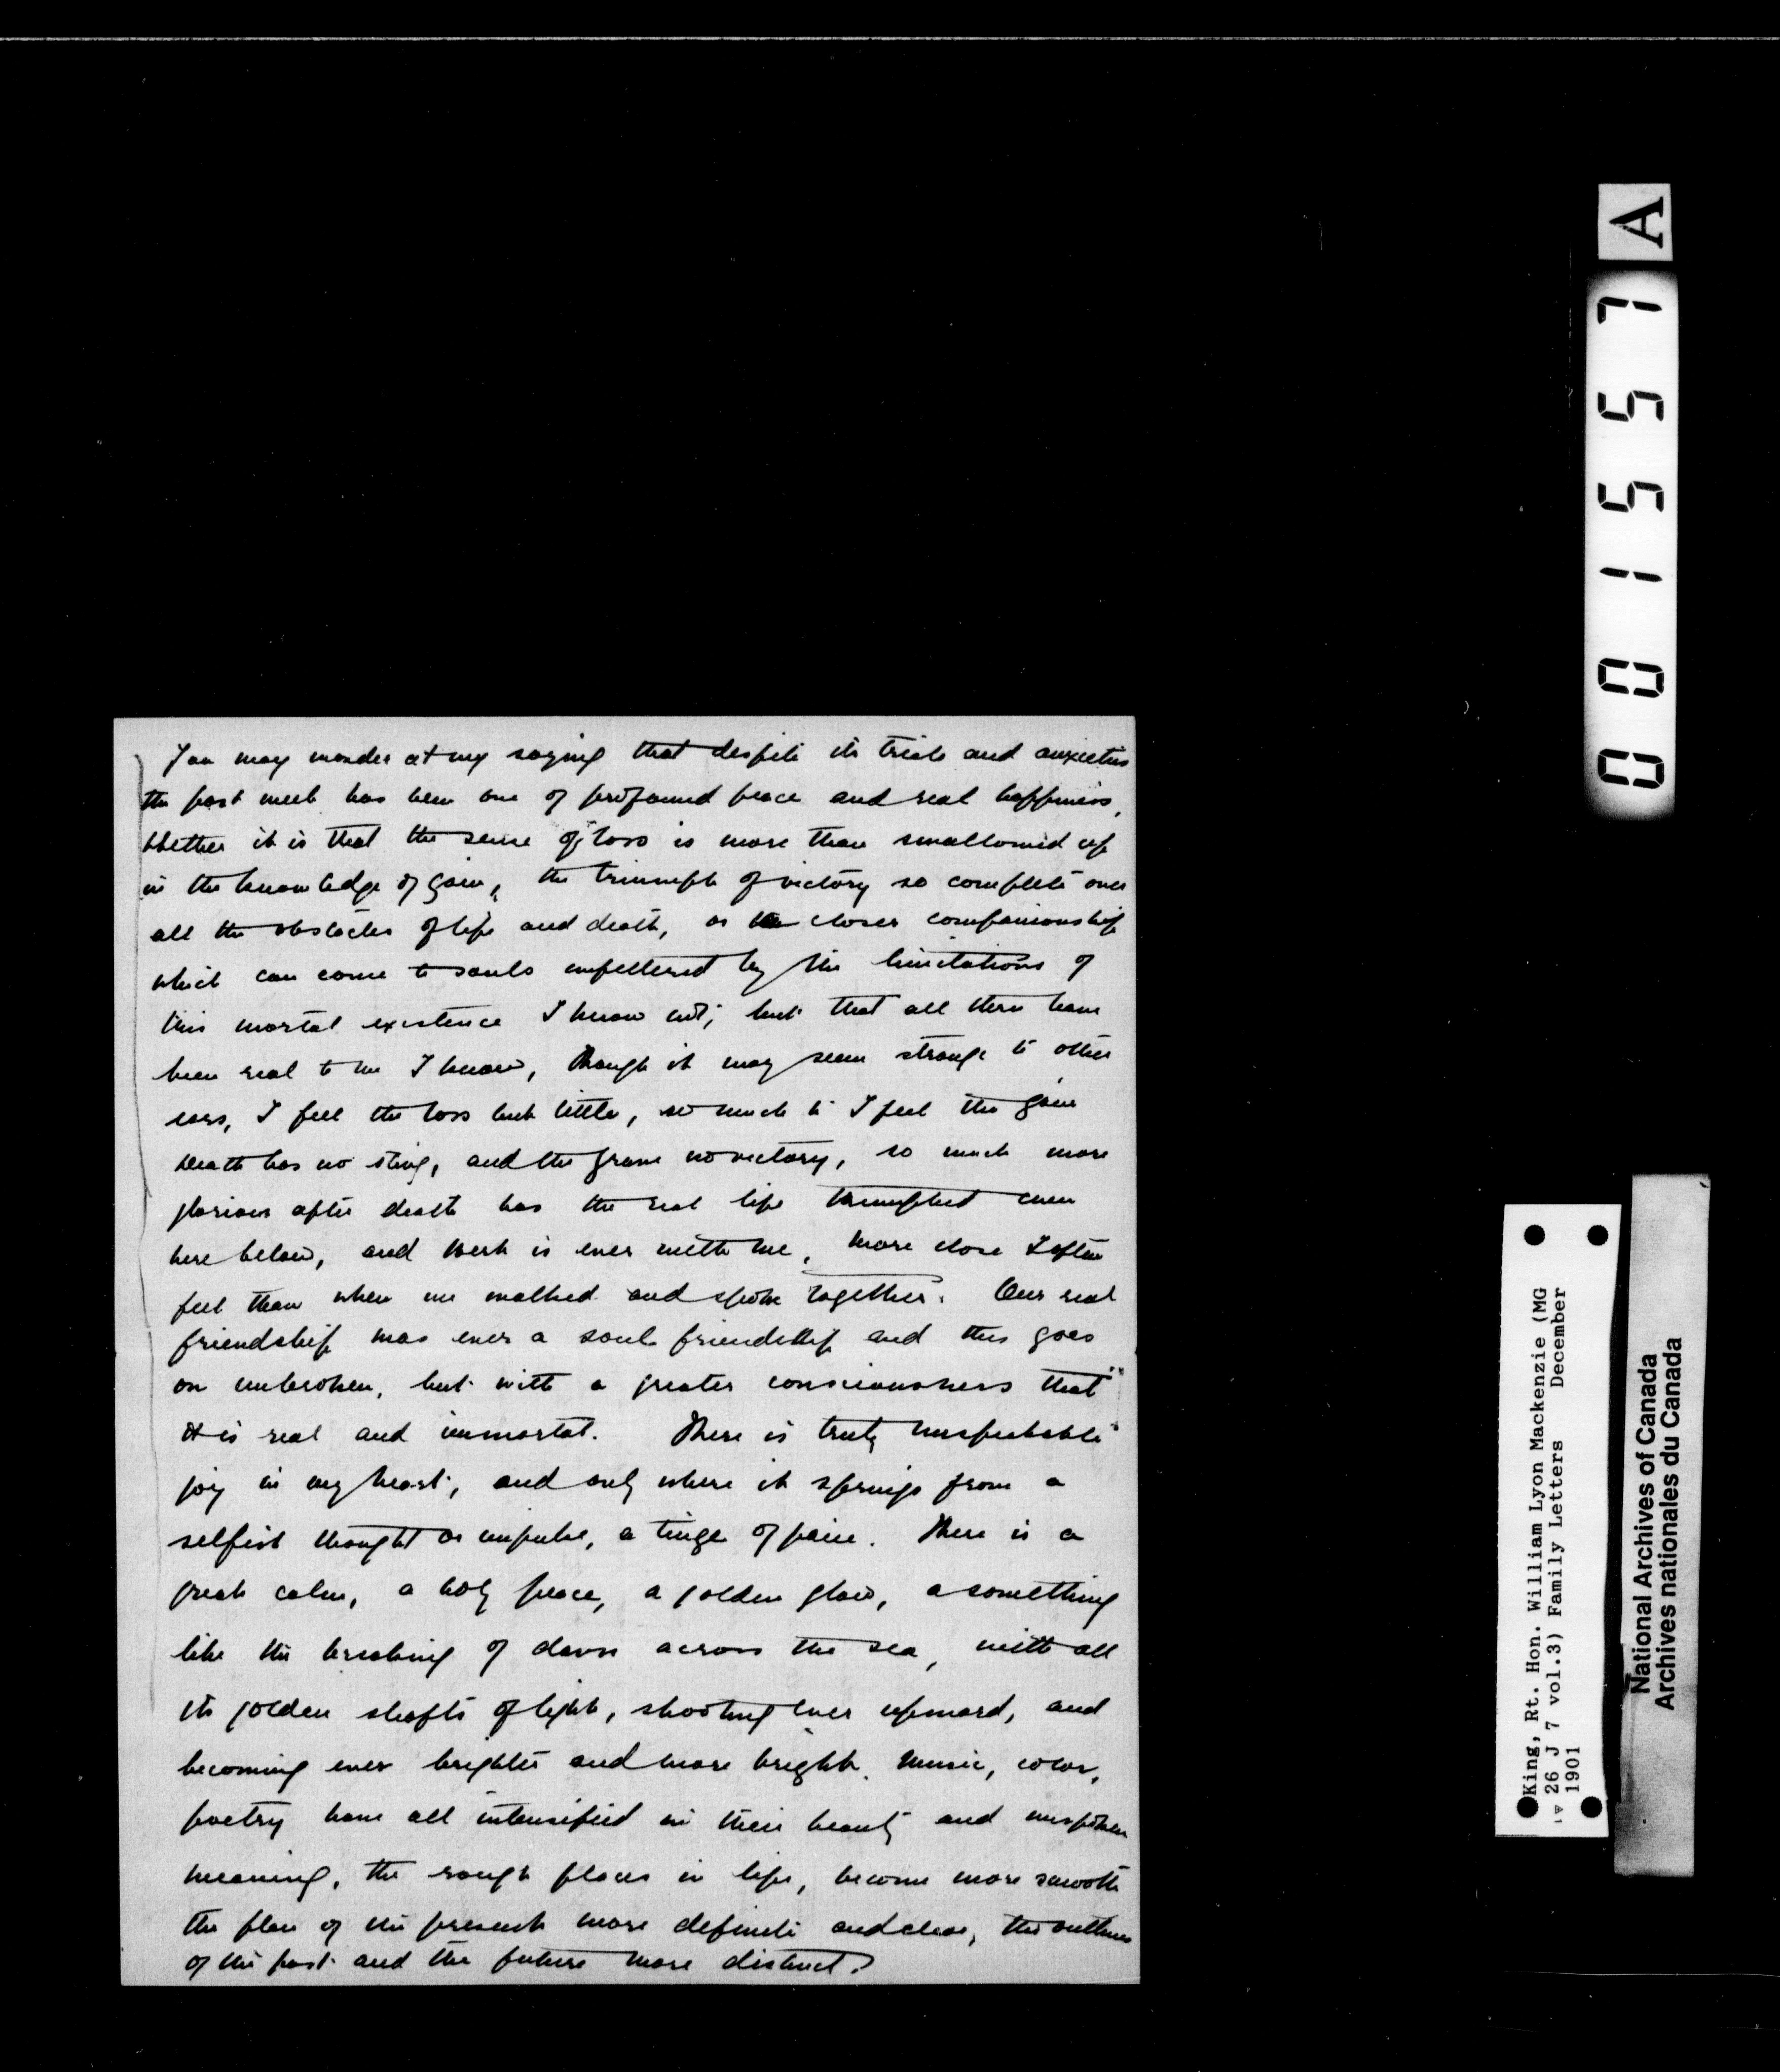 You may wonder at my saying that despite its trials and anxieties
the past week has been one of profound peace and real happiness,
Whether it is that the sense of loss is more than swallowed up
in the knowledge of gain, the triumph of victory so complete over
all the obstacles of life and death, or the closer companionship
which can come to souls unfettered by the limitations of
this mortal existence I know not; but that all these have
been real to me I know, though it may seem strange to other
ears, I feel the loss but little, so much do I feel the gain
Death has no sting, and the grave no victory, so much more
glorious after death has the real life triumphed even
here below, and Bert is ever with me, more close I often
feel than when we walked and spoke together. Our real
friendship was ever a soul friendship and this goes
on unbroken, but with a greater consciousness that
it is real and immortal. There is truly unspeakable
joy in my heart, and only where it springs from a
selfish thought or impulse, a tinge of pain. There is a
great calm, a holy peace, a golden glow, a something
like the breaking of dawn across the sea, with all
its golden shafts of light, shooting ever upward, and
becoming ever brighter and more bright. Music, color,
poetry have all intensified in their beauty and unspoken
meaning, the rough places in life, become more smooth
the plan of the present more definite and clear, the outlines
of the past and the future more distinct.
A
001557
King, Rt. Hon. William Lyon Mackenzie (MG
26 J 7 vol.3) Family Letters December
1901
National Archives of Canada
Archives nationales du Canada